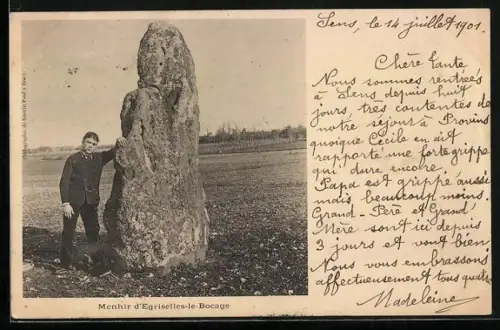 Sens, le 14 juillet 1901.
Chère Tante
Nous sommes rentrées
à Sens depuis huit
jours, très contentes de
notre séjour à Provins
quoique Cécile en ait
rapporté une forte grippe
qui dure encore.
Papa est grippé aussi
mais beaucoup moins.
Grand-Père et Grand'
Mère sont ici depuis
3 jours et vont bien.
Nous vous embrassons
affectueusement tous quatre
Madeleine
Menhir d'Egriselles-le-Bocage